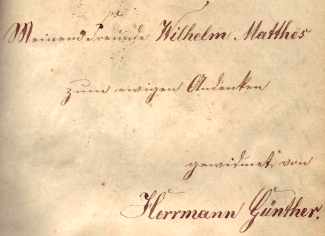 Meinem Freunde Wilhelm Matthes
zum ewigen Andenken
gewidmet von
Herrmann Günther.